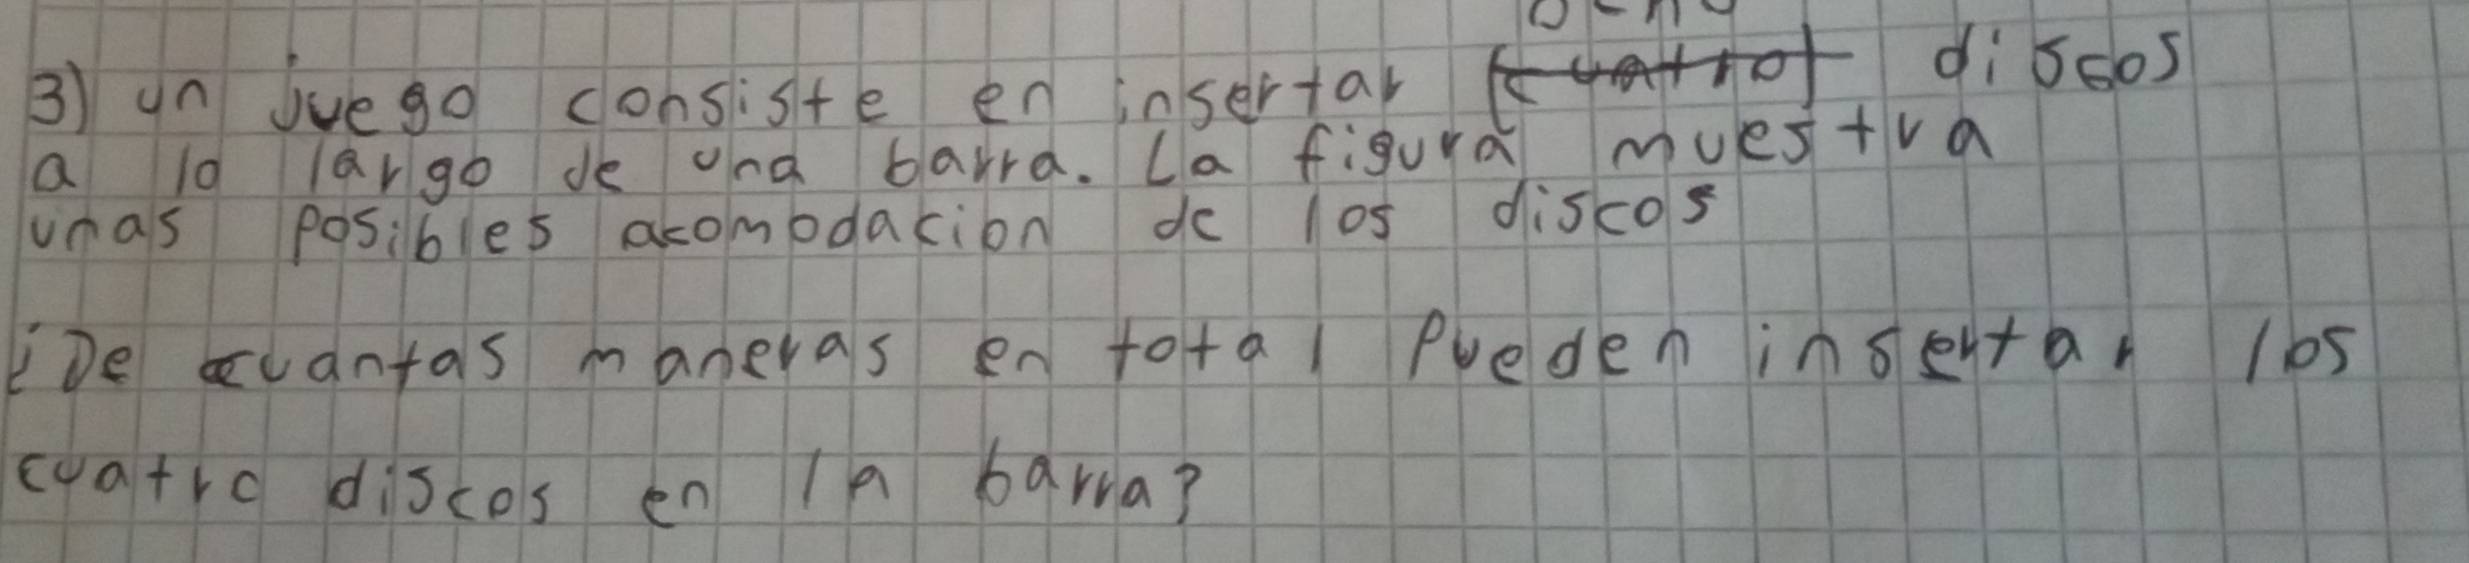 3) un juego consiste en insertar (cuatro) discos
a lo largo de una barra. La figura muestra
unas posibles acomodacion de los discos
¿De cuantas maneras en total Pueden insertar los
cuatro discos en la barra?